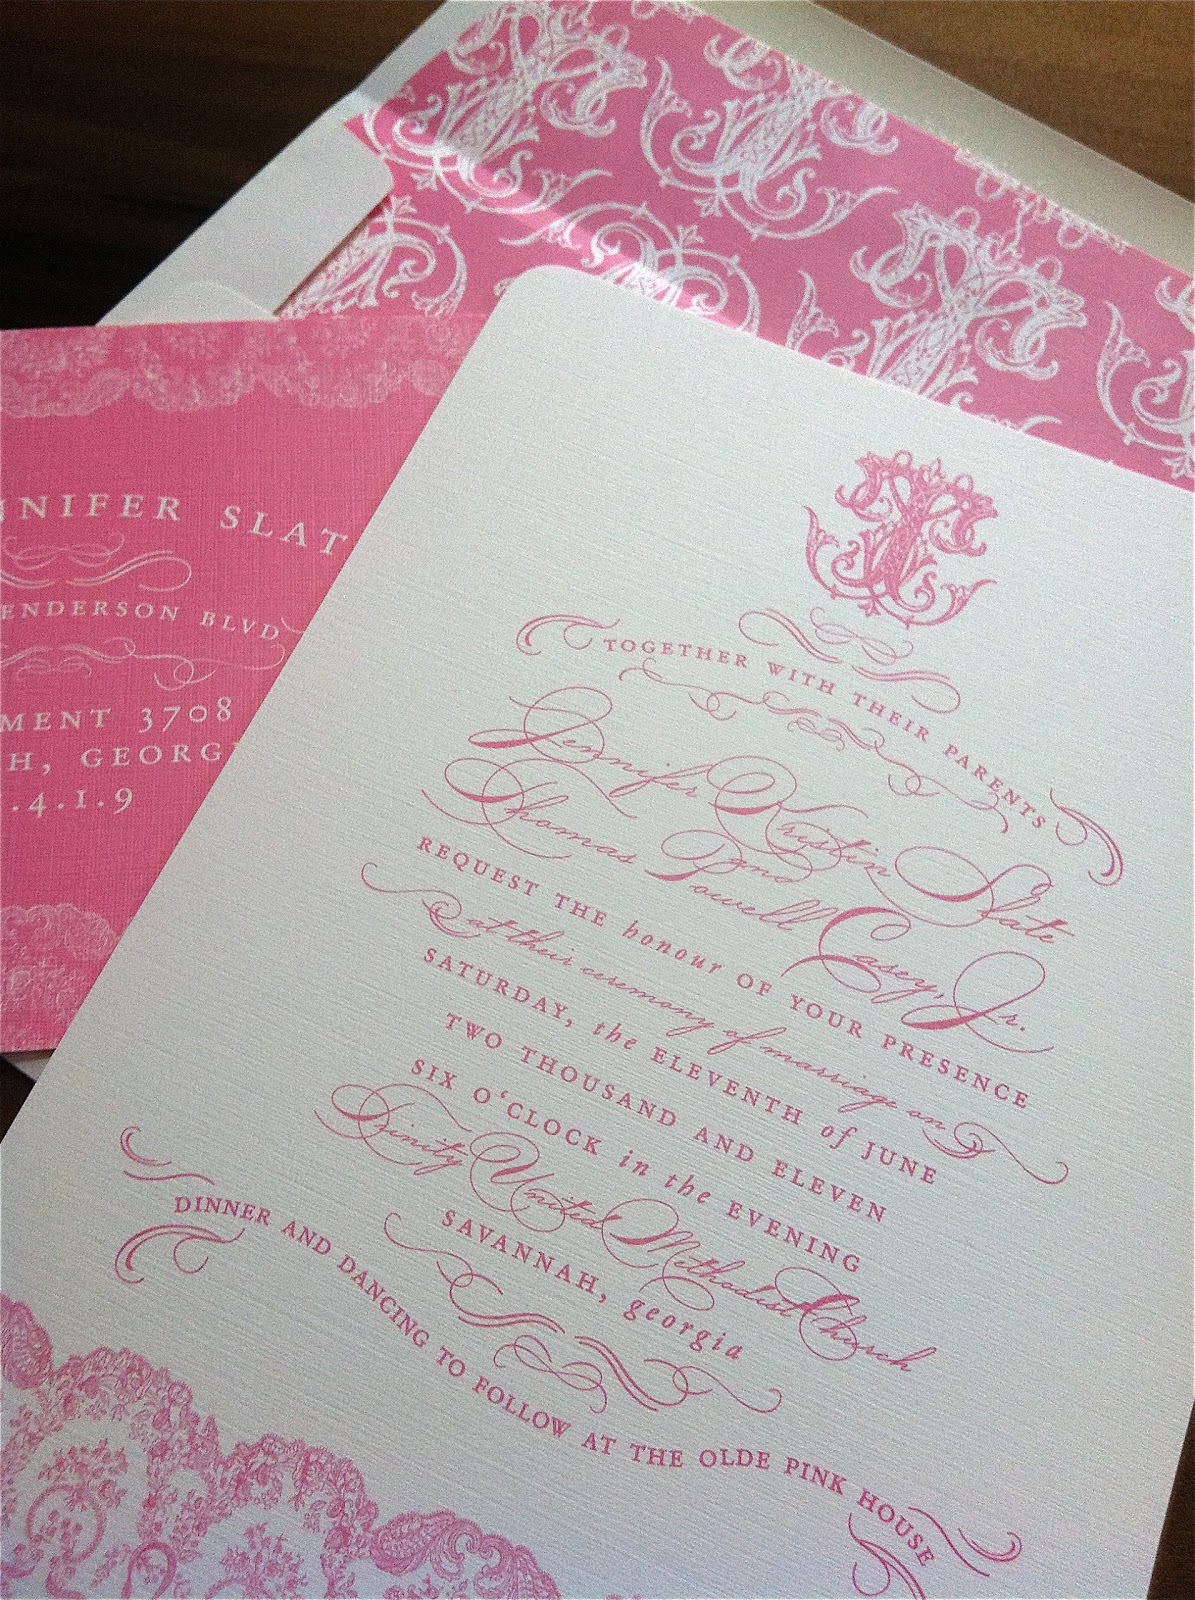 NNIFER SLAT
ENDERSON BLVD
MENT 3708
H, GEORGI
.4.1.9
TOGETHER WITH THEIR PARENTS
Jennifer Kristin Slate
and
Thomas Powell Casey, Jr.
REQUEST THE honour OF YOUR PRESENCE
at their ceremony of marriage on
SATURDAY, the ELEVENTH of JUNE
TWO THOUSAND AND ELEVEN
SIX O‘CLOCK in the EVENING
Trinity United Methodist Church
SAVANNAH, georgia
DINNER AND DANCING TO FOLLOW AT THE OLDE PINK HOUSE